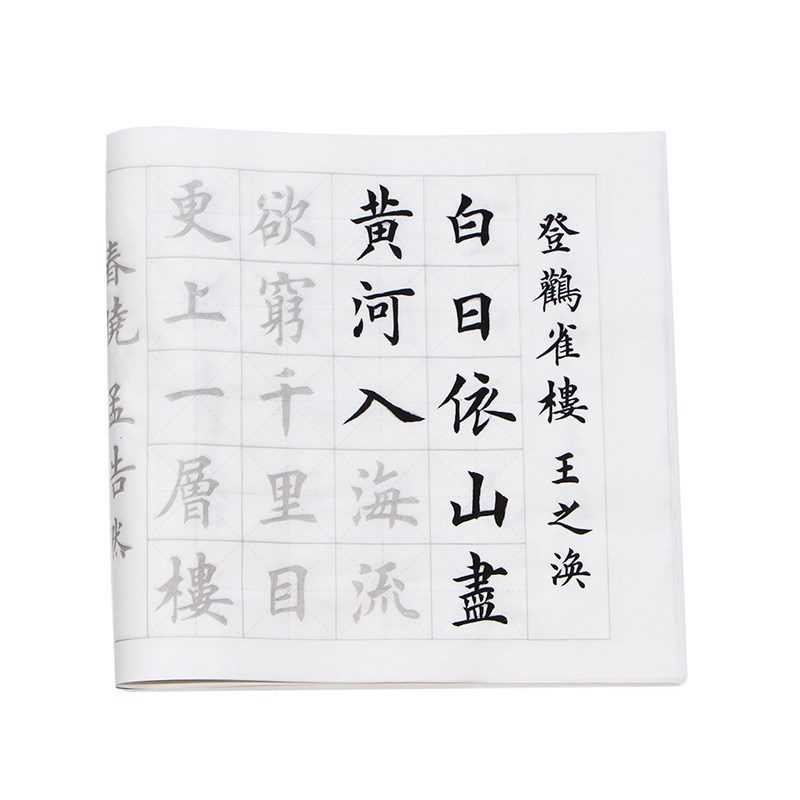 登鸛雀樓 王之渙
白日依山盡
黄河入海流
欲窮千里目
更上一層樓
春曉 孟浩然